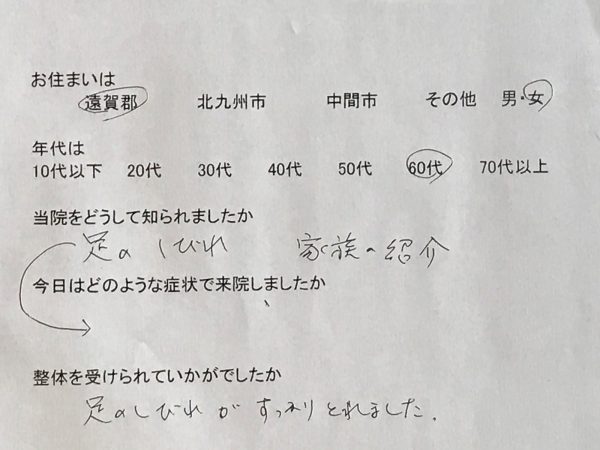 お住まいは
遠賀郡 北九州市 中間市 その他 男・女
年代は
10代以下 20代 30代 40代 50代 60代 70代以上
当院をどうして知られましたか
足のしびれ 家族の紹介
今日はどのような症状で来院しましたか
整体を受けられていかがでしたか
足のしびれがすっきりとれました。